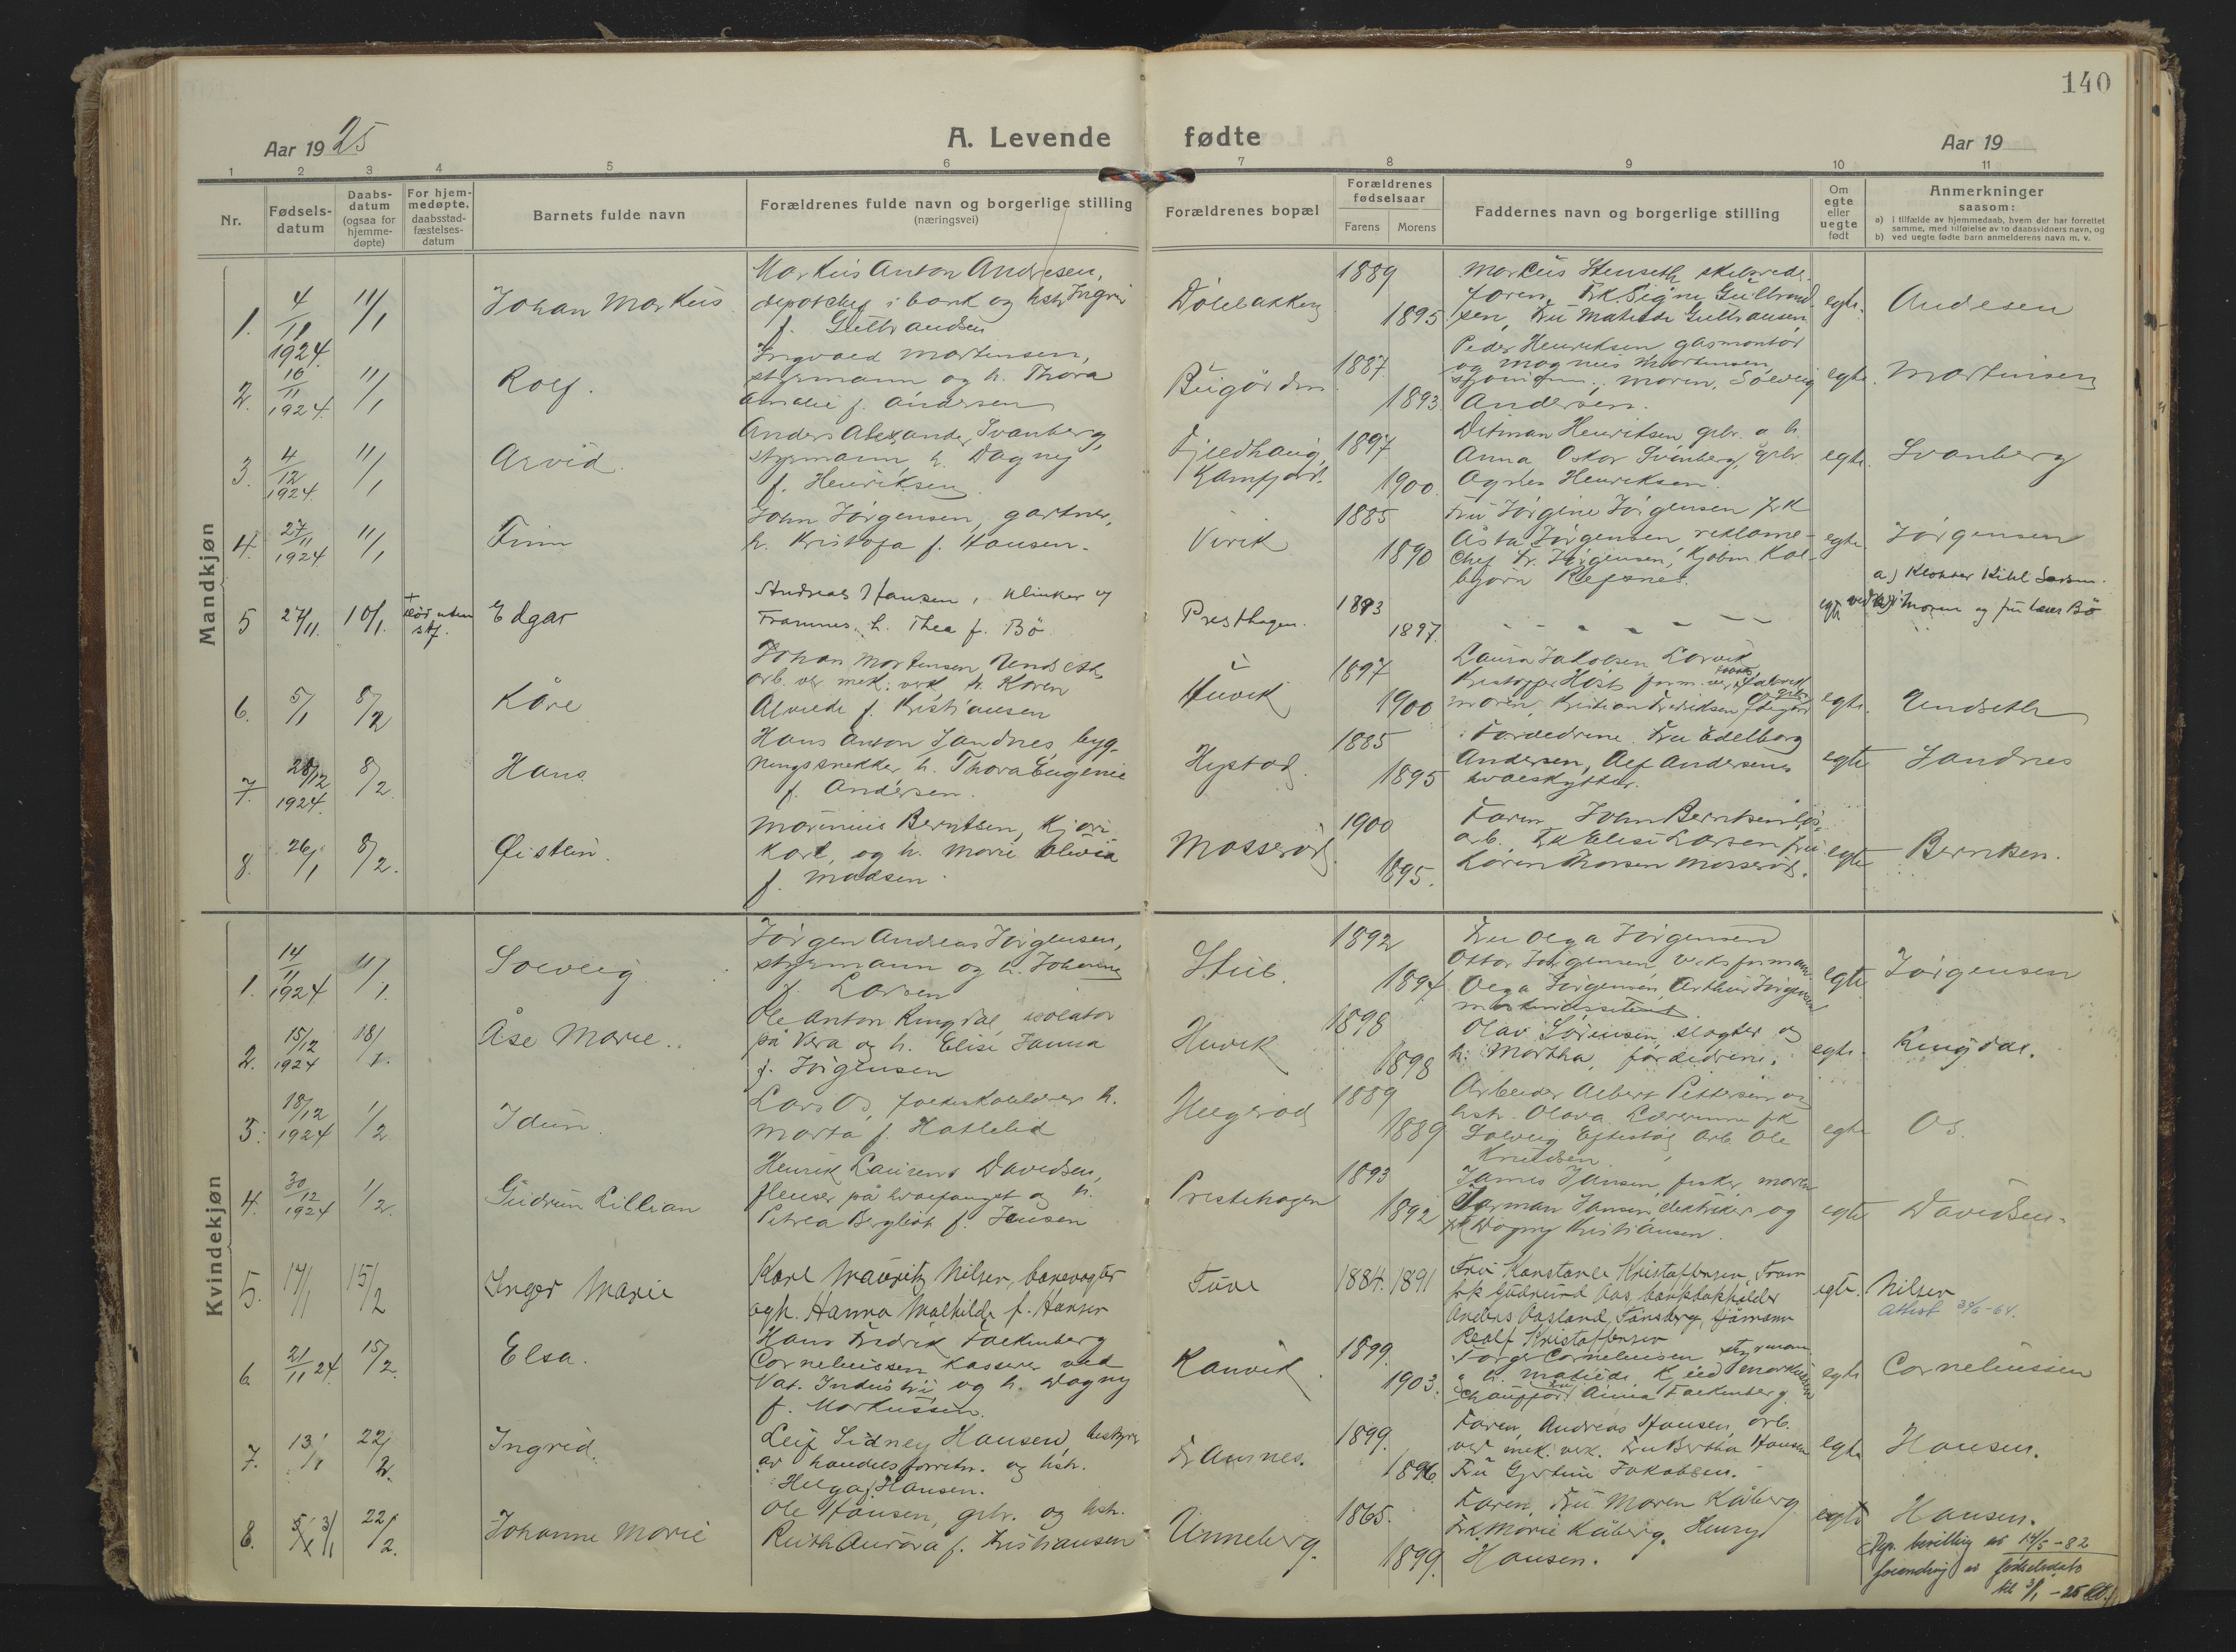 140
Aar 1925
A. Levende fødte
Aar 19
1 2 3 4 5 6 7 8 9 10 11
Nr.
Fødsels-
datum
Daabs-
datum
(ogsaa for
hjemme-
døpte)
For hjem-
medøpte.
daabsstad-
fæstelses-
datum
Barnets fulde navn
Forældrenes fulde navn og borgerlige stilling
(næringsvei)
Forældrenes bopæl
Forældrenes
fødselsaar
Farens Morens
Faddernes navn og borgerlige stilling
Om
egte
eller
uegte
født
Anmerkninger
saasom:
a) i tilfælde av hjemmedaab, hvem der har forrettet
samme, med tilføielse av to daabsvidners navn, og
b) ved uegte fødte barn anmelderens navn m. v.
Mandkjøn
1. 4/11 1924 11/1
Johan Markus
Markus Anton Andresen,
depotchef i bank og hstr Ingrid
f. Gulbrandsen
1889
1895
Markus Stenseth, skibsrede.
faren. Frk Signe Gulbrand-
sen, Fru Matilde Gulbransen
egte.
Andresen
2. 16/11 1924 11/1
Rolf.
Ingvald Martinsen,
styrmann og h. Thora
Amalie f. Andersen
Bugården
1887
1893
Peder Henriksen gasmontør
og Magnus Martinsen
moren, Solveig
Andersen.
egte.
Martinsen
3. 4/12 1924 11/1
Arvid.
Anders Alexander Svanberg,
styrmann h. Dagny
f. Henriksen
Fjeldhaug,
Kamfjord.
1897
1900
Ditman Henriksen gbr. o h.
Anna Oskar Svanberg, gbr
Agnes Henriksen.
egte
Svanberg
4. 27/11 1924 11/1
Finn
John Jörgensen, gartner,
h. Kristofa f. Hansen.
Virik
1885
1890
Fru Jörgine Jörgensen frk
Åsta Jörgensen, reklame-
chef Fr. Jörgensen, Kjøbm. Kol-
bjørn Refsnes.
egte.
Jörgensen
5 27/11. 10/1. + død uten
stf.
Edgar
Andreas Hansen, klinker v
Framnes. h. Thea f. Bö
Presthagen.
1893
1897.
egte
a) Klokker Kihl Larsen.
moren og fru Bö
6. 5/1 8/2
Kåre
Johan Martinsen Undseth,
arb. v mek. verk, h. Karen
Alvilde f. Kristiansen
Huvik
1897
1900
Laura Jakobsen Larvik
Kristoffer Höst form. ved fabrik
moren, Kristian Fredriksen
egte.
Undseth
7. 28/12 1924 8/2
Hans
Hans Anton Sandnes, byg-
ningssnekker, h. Thora Eugenie
f. Andersen.
Hystad
1885
1895
Forældrene. Fru Edelborg
Andersen, Alf Andersen
hvalskytter.
egte
Sandnes
8. 26/1 8/2.
Øistein.
Marinius Berntsen, kjøre-
karl, og h. Marie Olivia
f. Madsen.
Mosserød.
1900
1895.
Faren John Berntsen løs-
arb. Frk Elise Larsen fru
Karen Thorsen Mosserød.
egte
Berntsen.
Kvindekjøn
1. 14/11 1924 11/1.
Solveig
Jörgen Andreas Jörgensen,
styrmann og h. Johanne
f. Larsen
Stub.
1892
1894
Fru Olga Jörgensen
Ottar Jörgensen verksformann
Olga Jörgensen, Arthur Jörgensen
egte
Jörgensen
2. 15/12 1924 18/1.
Åse Marie.
Ole Anton Ringdal isolatør
på Vera og h. Elise Janna
f. Jörgensen
Huvik
1898
1898
Olav Sörensen, slagter og
h. Martha, forældrene.
egte.
Ringdal.
3. 18/12 1924 1/2
Idun.
Lars Os, folkeskolelærer h.
Marta f. Hatlelid
Helgerød
1889
1889
Arbeider Albert Pettersen og
hstr. Olava. Lærerinne frk
Solveig Eftestøl Arb. Ole
Knudsen
egte
Os.
4. 30/12 1924 1/2.
Gudrun Lillian
Henrik Laurents Davidsen,
flenser på hvalfanget og h.
Petrea Bergliot f. Jensen
Prestehagen
1893
1892
James Jansen, fisker, moren
Jarman Jansen elektriker og
frk Dagny Kristiansen.
egte
Davidsen.
5. 17/1 15/2
Inger Marie
Karl Mauritz Nilsen, banevogter
og h. Hanna Mathilde f. Hansen
Tuve
1884. 1891
Fru Konstanse Kristoffersen, Fram
frk Gudrund Aas, bankbokholder
Anders Aasland, Tønsberg, sjömann
Rolf Kristoffersen
egte.
Nilsen
Attest 30/6-64.
6. 21/11 24. 15/2.
Elsa.
Hans Fredrik Falkenberg
Corneliussen, kasserer ved
Vat. Industri og h. Dagny
f. Markussen.
Ranvik
1899.
1903.
Torger Corneliusen styrman
o h. Matilde, Kjell Markussen
chauffør. Fru Anna Falkenberg.
egte
Corneliussen
7. 13/1 22/2.
Ingrid.
Leif Sidney Hansen, bestyrer
av handelsforretn. og hstr.
Helga f. Hansen.
Framnes.
1899.
1896.
Faren, Andreas Hansen, arb.
ved mek. verk. Fru Bertha Hansen
Fru Gjertine Jakobsen.
egte
Hansen.
8. 3/1 22/2.
Johanne Marie
Ole Hansen, gbr. og hstr.
Ruth Aurora f. Kristiansen
Unneberg.
1865.
1899.
Faren, Fru Maren Kåberg
Frk Marie Kåberg. Henry
Hansen.
egte
Hansen.
Dep. bevilling av 14/5-82
forandring av fødselsdato
til 3/1-25